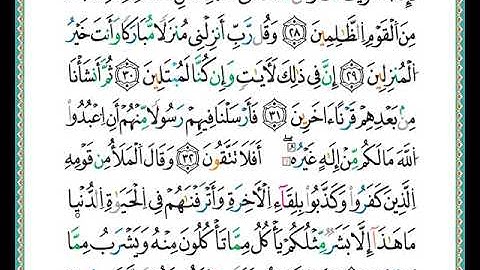 مِنَ الْقَوْمِ الظَّٰلِمِينَ ٢٨ وَقُل رَّبِّ أَنزِلْنِي مُنزَلًا مُّبَارَكًا وَأَنتَ خَيْرُ
الْمُنزِلِينَ ٢٩ إِنَّ فِي ذَٰلِكَ لَآيَٰتٍ وَإِن كُنَّا لَمُبْتَلِينَ ٣٠ ثُمَّ أَنشَأْنَا
مِنۢ بَعْدِهِمْ قَرْنًا ءَاخَرِينَ ٣١ فَأَرْسَلْنَا فِيهِمْ رَسُولًا مِّنْهُمْ أَنِ اعْبُدُوا
اللَّهَ مَا لَكُم مِّنْ إِلَٰهٍ غَيْرُهُ أَفَلَا تَتَّقُونَ ٣٢ وَقَالَ الْمَلَأُ مِن قَوْمِهِ
الَّذِينَ كَفَرُوا وَكَذَّبُوا بِلِقَاءِ الْآخِرَةِ وَأَتْرَفْنَٰهُمْ فِي الْحَيَوٰةِ الدُّنْيَا
مَا هَٰذَا إِلَّا بَشَرٌ مِّثْلُكُمْ يَأْكُلُ مِمَّا تَأْكُلُونَ مِنْهُ وَيَشْرَبُ مِمَّا